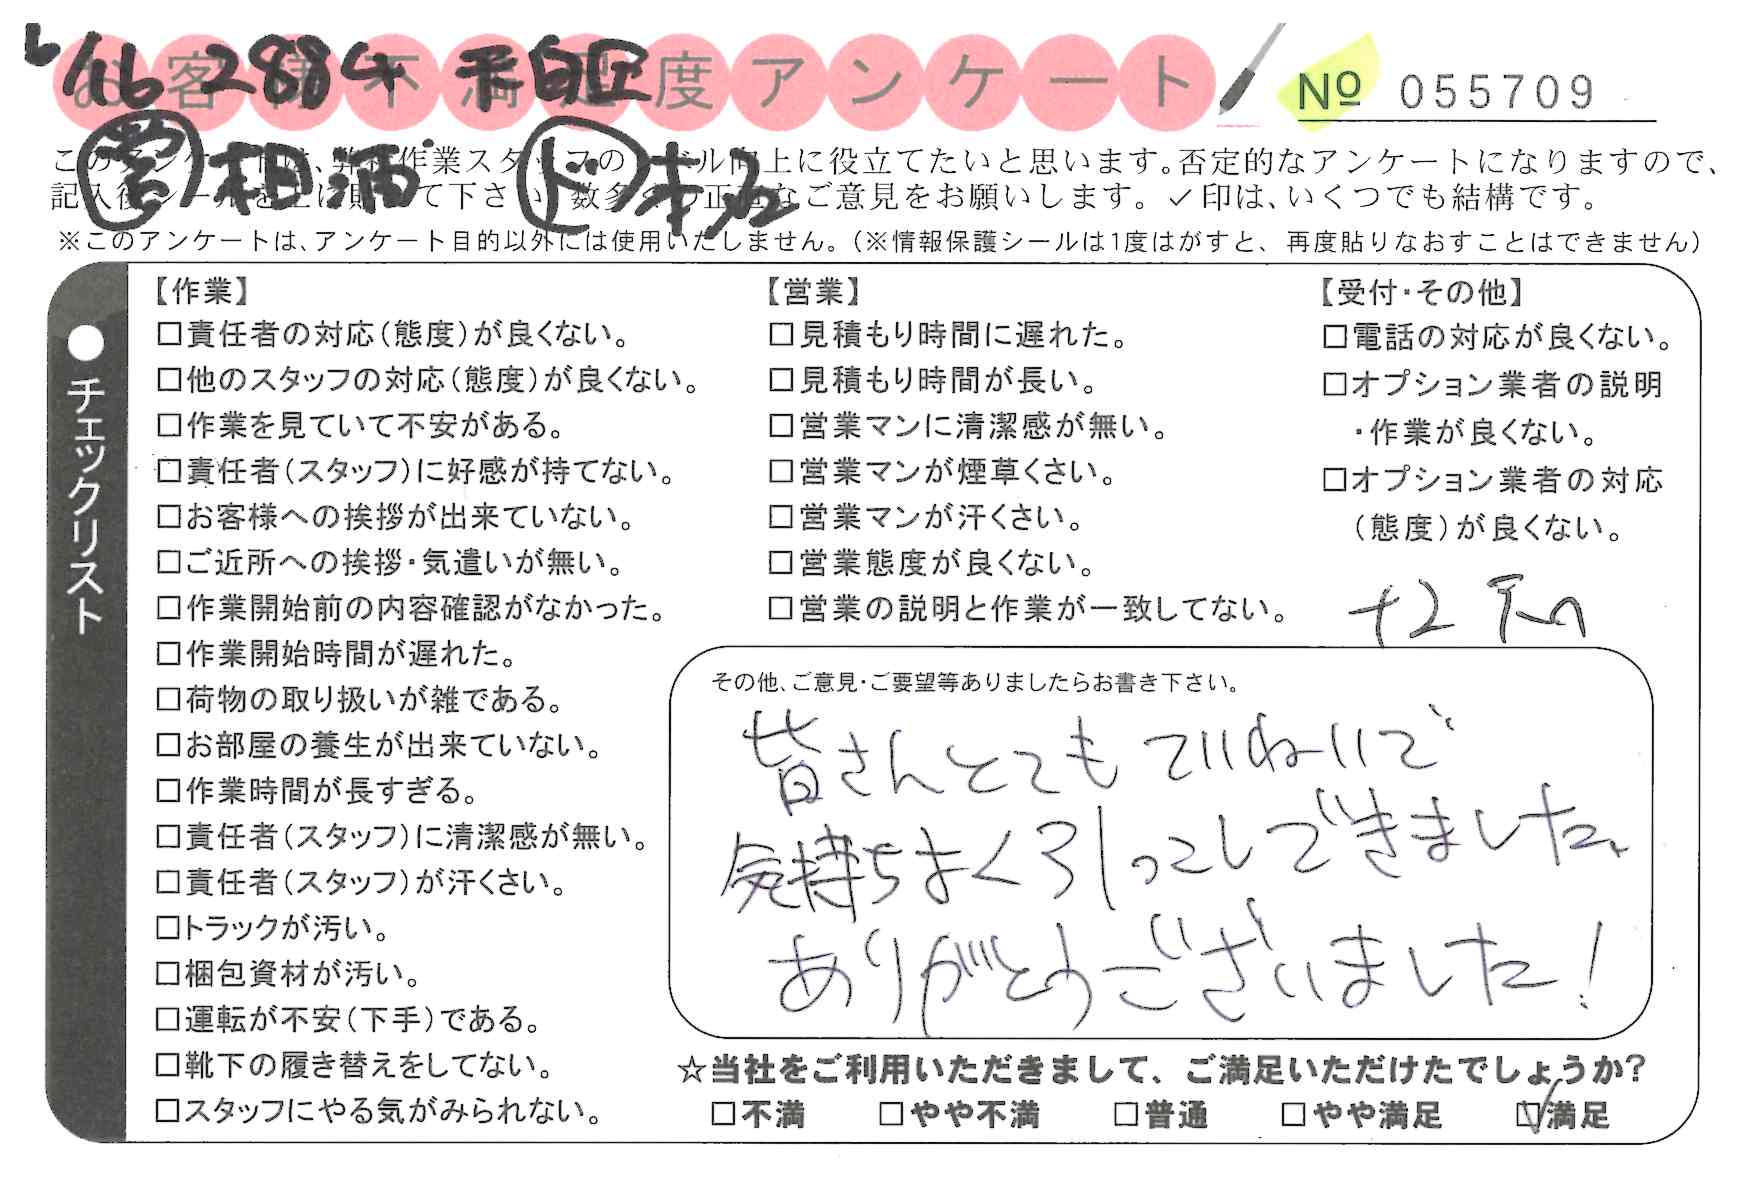 お客様不満足度アンケート
№ 055709
6/16 2884
営 相浦 ド
このアンケートは、弊社作業スタッフのレベル向上に役立てたいと思います。否定的なアンケートになりますので、
記入後シールを上に貼って下さい。数多くの正直なご意見をお願いします。✓印は、いくつでも結構です。
※このアンケートは、アンケート目的以外には使用いたしません。(※情報保護シールは1度はがすと、再度貼りなおすことはできません)
●チェックリスト
【作業】
□責任者の対応(態度)が良くない。
□他のスタッフの対応(態度)が良くない。
□作業を見ていて不安がある。
□責任者(スタッフ)に好感が持てない。
□お客様への挨拶が出来ていない。
□ご近所への挨拶・気遣いが無い。
□作業開始前の内容確認がなかった。
□作業開始時間が遅れた。
□荷物の取り扱いが雑である。
□お部屋の養生が出来ていない。
□作業時間が長すぎる。
□責任者(スタッフ)に清潔感が無い。
□責任者(スタッフ)が汗くさい。
□トラックが汚い。
□梱包資材が汚い。
□運転が不安(下手)である。
□靴下の履き替えをしてない。
□スタッフにやる気がみられない。
【営業】
□見積もり時間に遅れた。
□見積もり時間が長い。
□営業マンに清潔感が無い。
□営業マンが煙草くさい。
□営業マンが汗くさい。
□営業態度が良くない。
□営業の説明と作業が一致してない。
【受付・その他】
□電話の対応が良くない。
□オプション業者の説明
・作業が良くない。
□オプション業者の対応
(態度)が良くない。
その他、ご意見・ご要望等ありましたらお書き下さい。
皆さんとてもていねいで
気持ちよく引っこしできました、
ありがとうございました!
☆当社をご利用いただきまして、ご満足いただけたでしょうか?
□不満 □やや不満 □普通 □やや満足 ☑満足